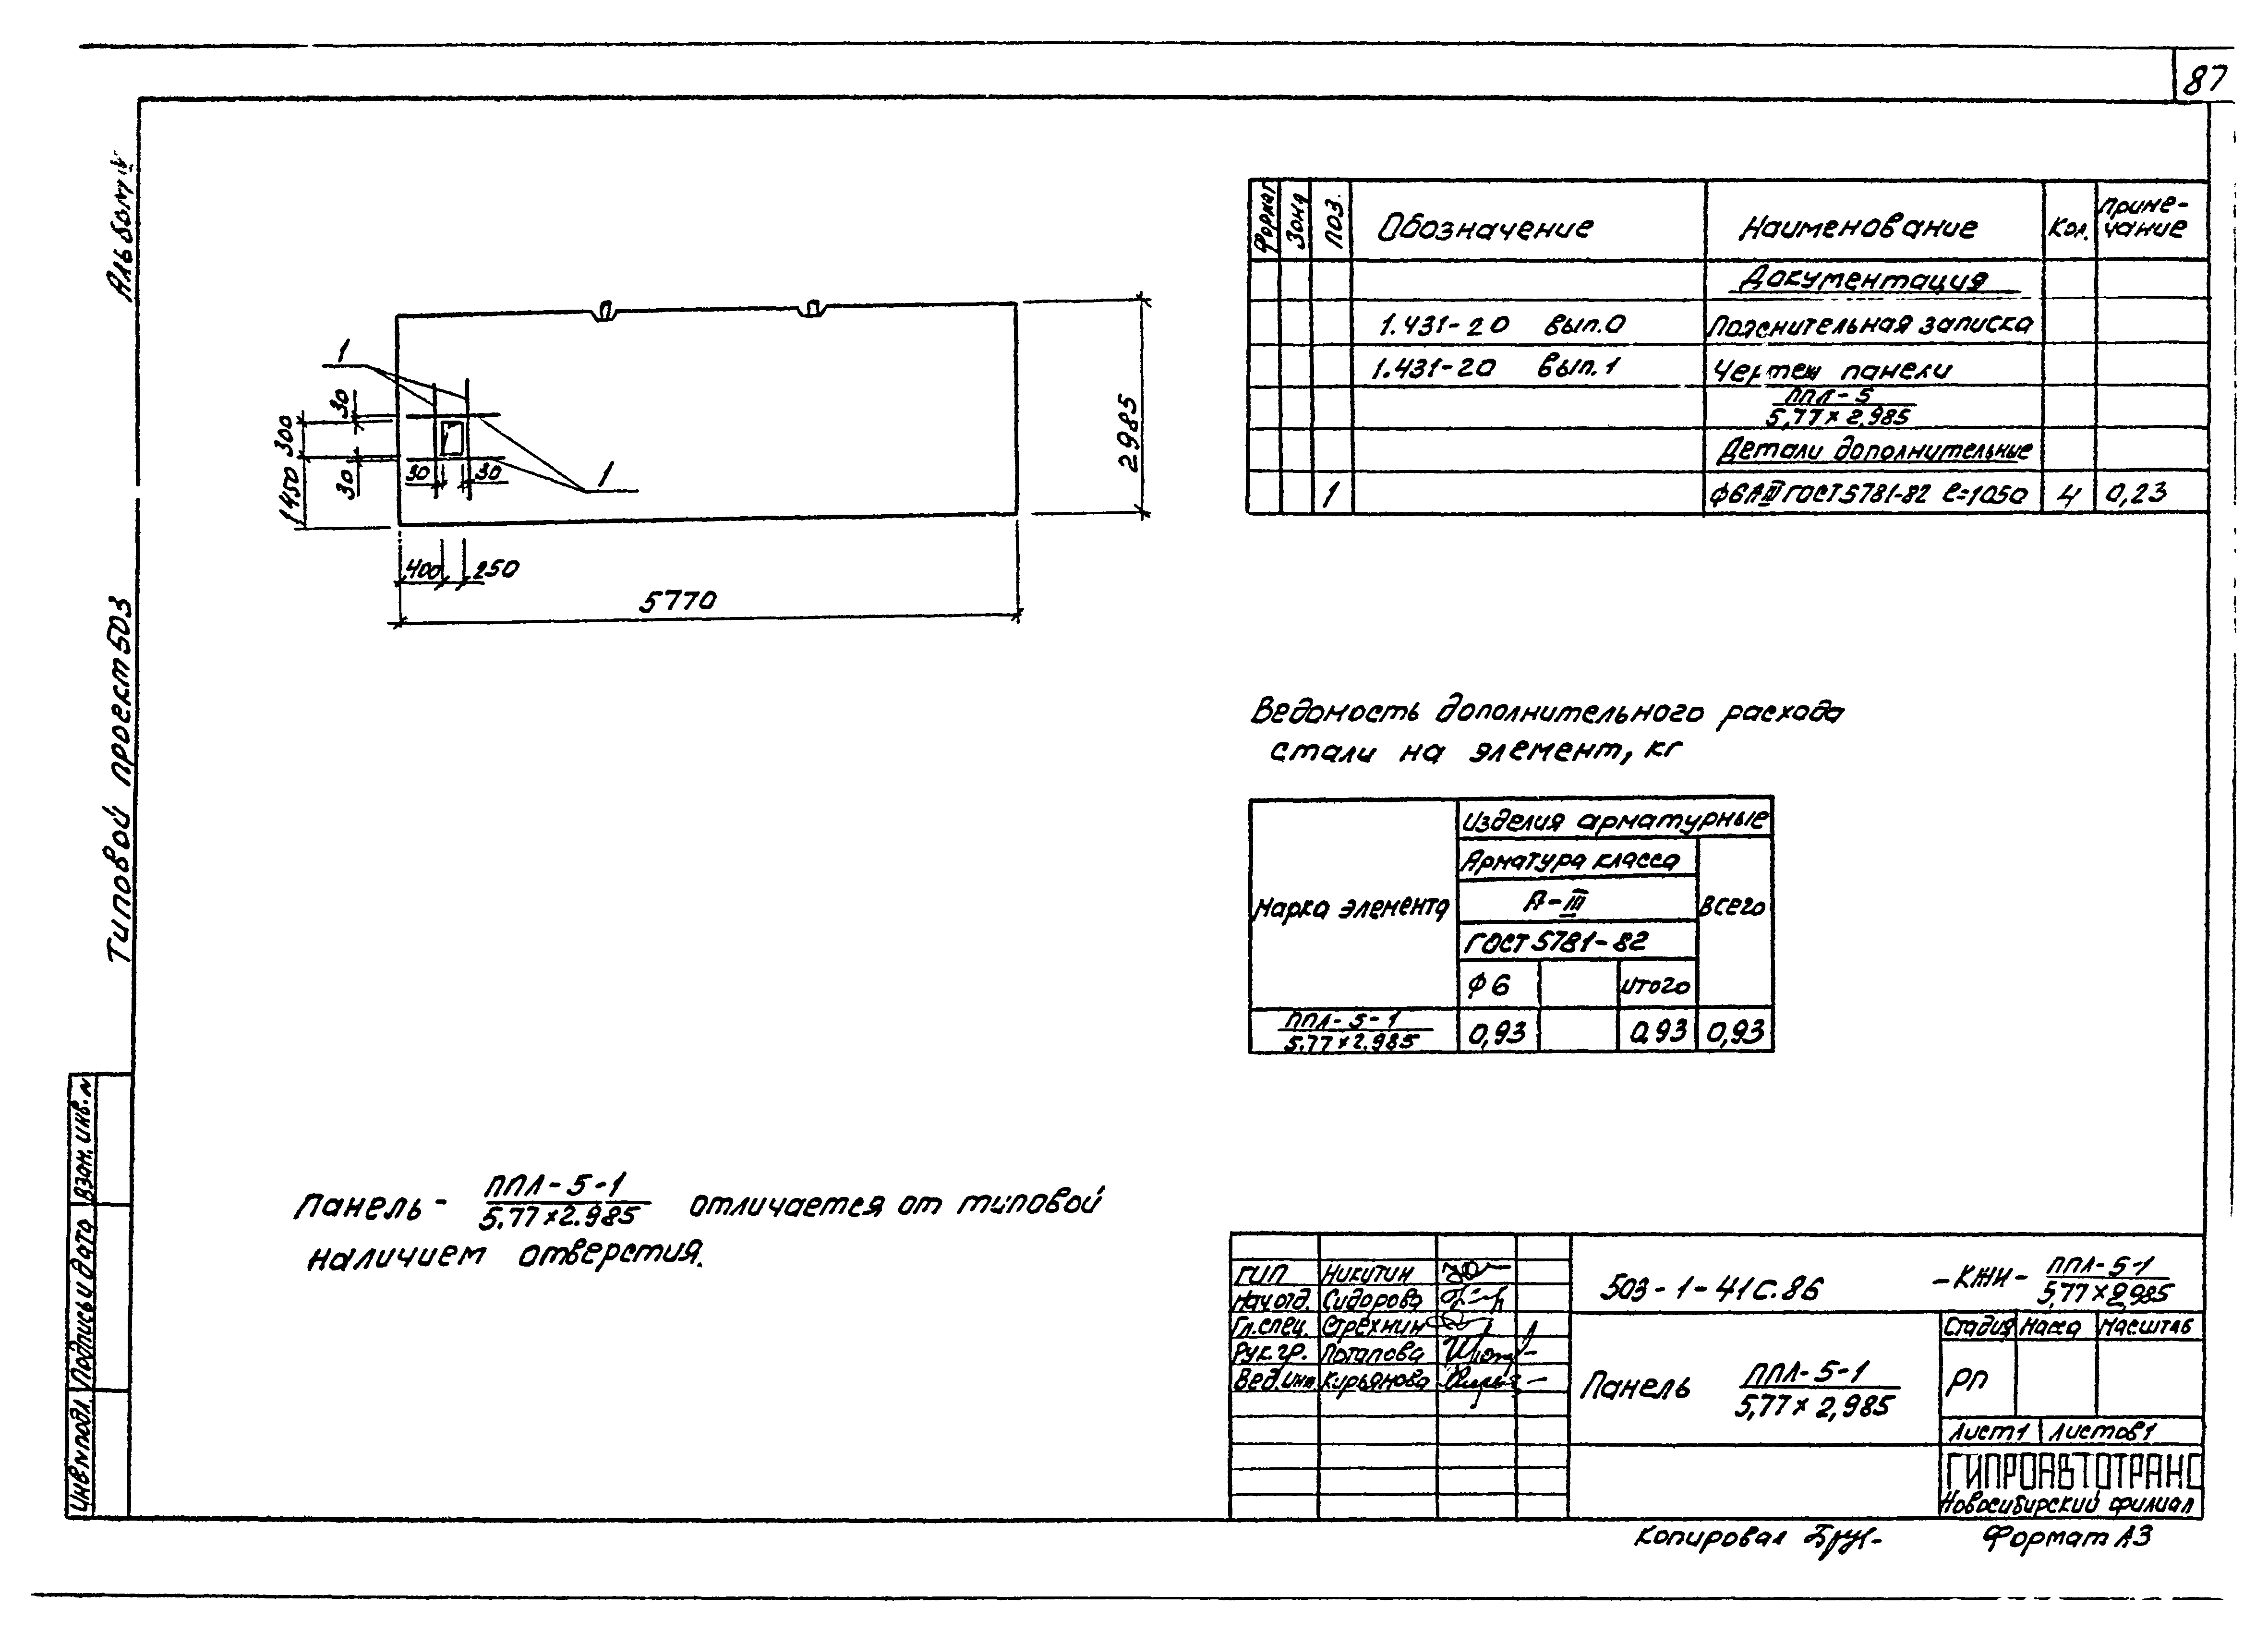 87
Альбом IV
Типовой проект 503
Взам. инв. N
Подпись и дата
Инв N подл.
1
30
300
30
1450
30
30
1
2985
400
250
5770
Формат
Зона
Поз.
Обозначение
Наименование
Кол.
Приме-
чание
Документация
1.431-20 вып.0
Пояснительная записка
1.431-20 вып.1
Чертеж панели
ППЛ-5
5,77×2.985
Детали дополнительные
1
ф6АIII ГОСТ5781-82 ℓ=1050
4
0,23
Ведомость дополнительного расхода
стали на элемент, кг
Марка элемента
Изделия арматурные
Арматура класса
А-III
ГОСТ 5781-82
ф6
итого
всего
ППЛ-5-1
5.77×2.985
0,93
0,93
0,93
Панель- ППЛ-5-1 отличается от типовой
5.77×2.985
наличием отверстия.
ГИП Никитин
Нач.отд. Сидорова
Гл.спец. Стрехнин
Рук.гр. Потапова
Вед.инж. Кирьянова
503-1-41С.86
-КЖИ- ППЛ-5-1
5,77×2,985
Панель ППЛ-5-1
5,77×2,985
Стадия Масса Масштаб
РП
Лист 1 Листов 1
ГИПРОАВТОТРАНС
Новосибирский филиал
Копировал
Формат А3